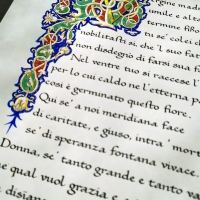 umile e alta
termine fisso
tu se' colei
nobilitasti sì, che 'l suo
non disdegnò di farsi sua
Nel ventre tuo si raccese
per lo cui caldo ne l'etterna
così è germinato questo fiore.
Qui se' a noi meridiana face
di caritate, e giuso, intra '
se' di speranza fontana vivace.
Donna, se' tanto grande e tanto
qual vuol grazia e